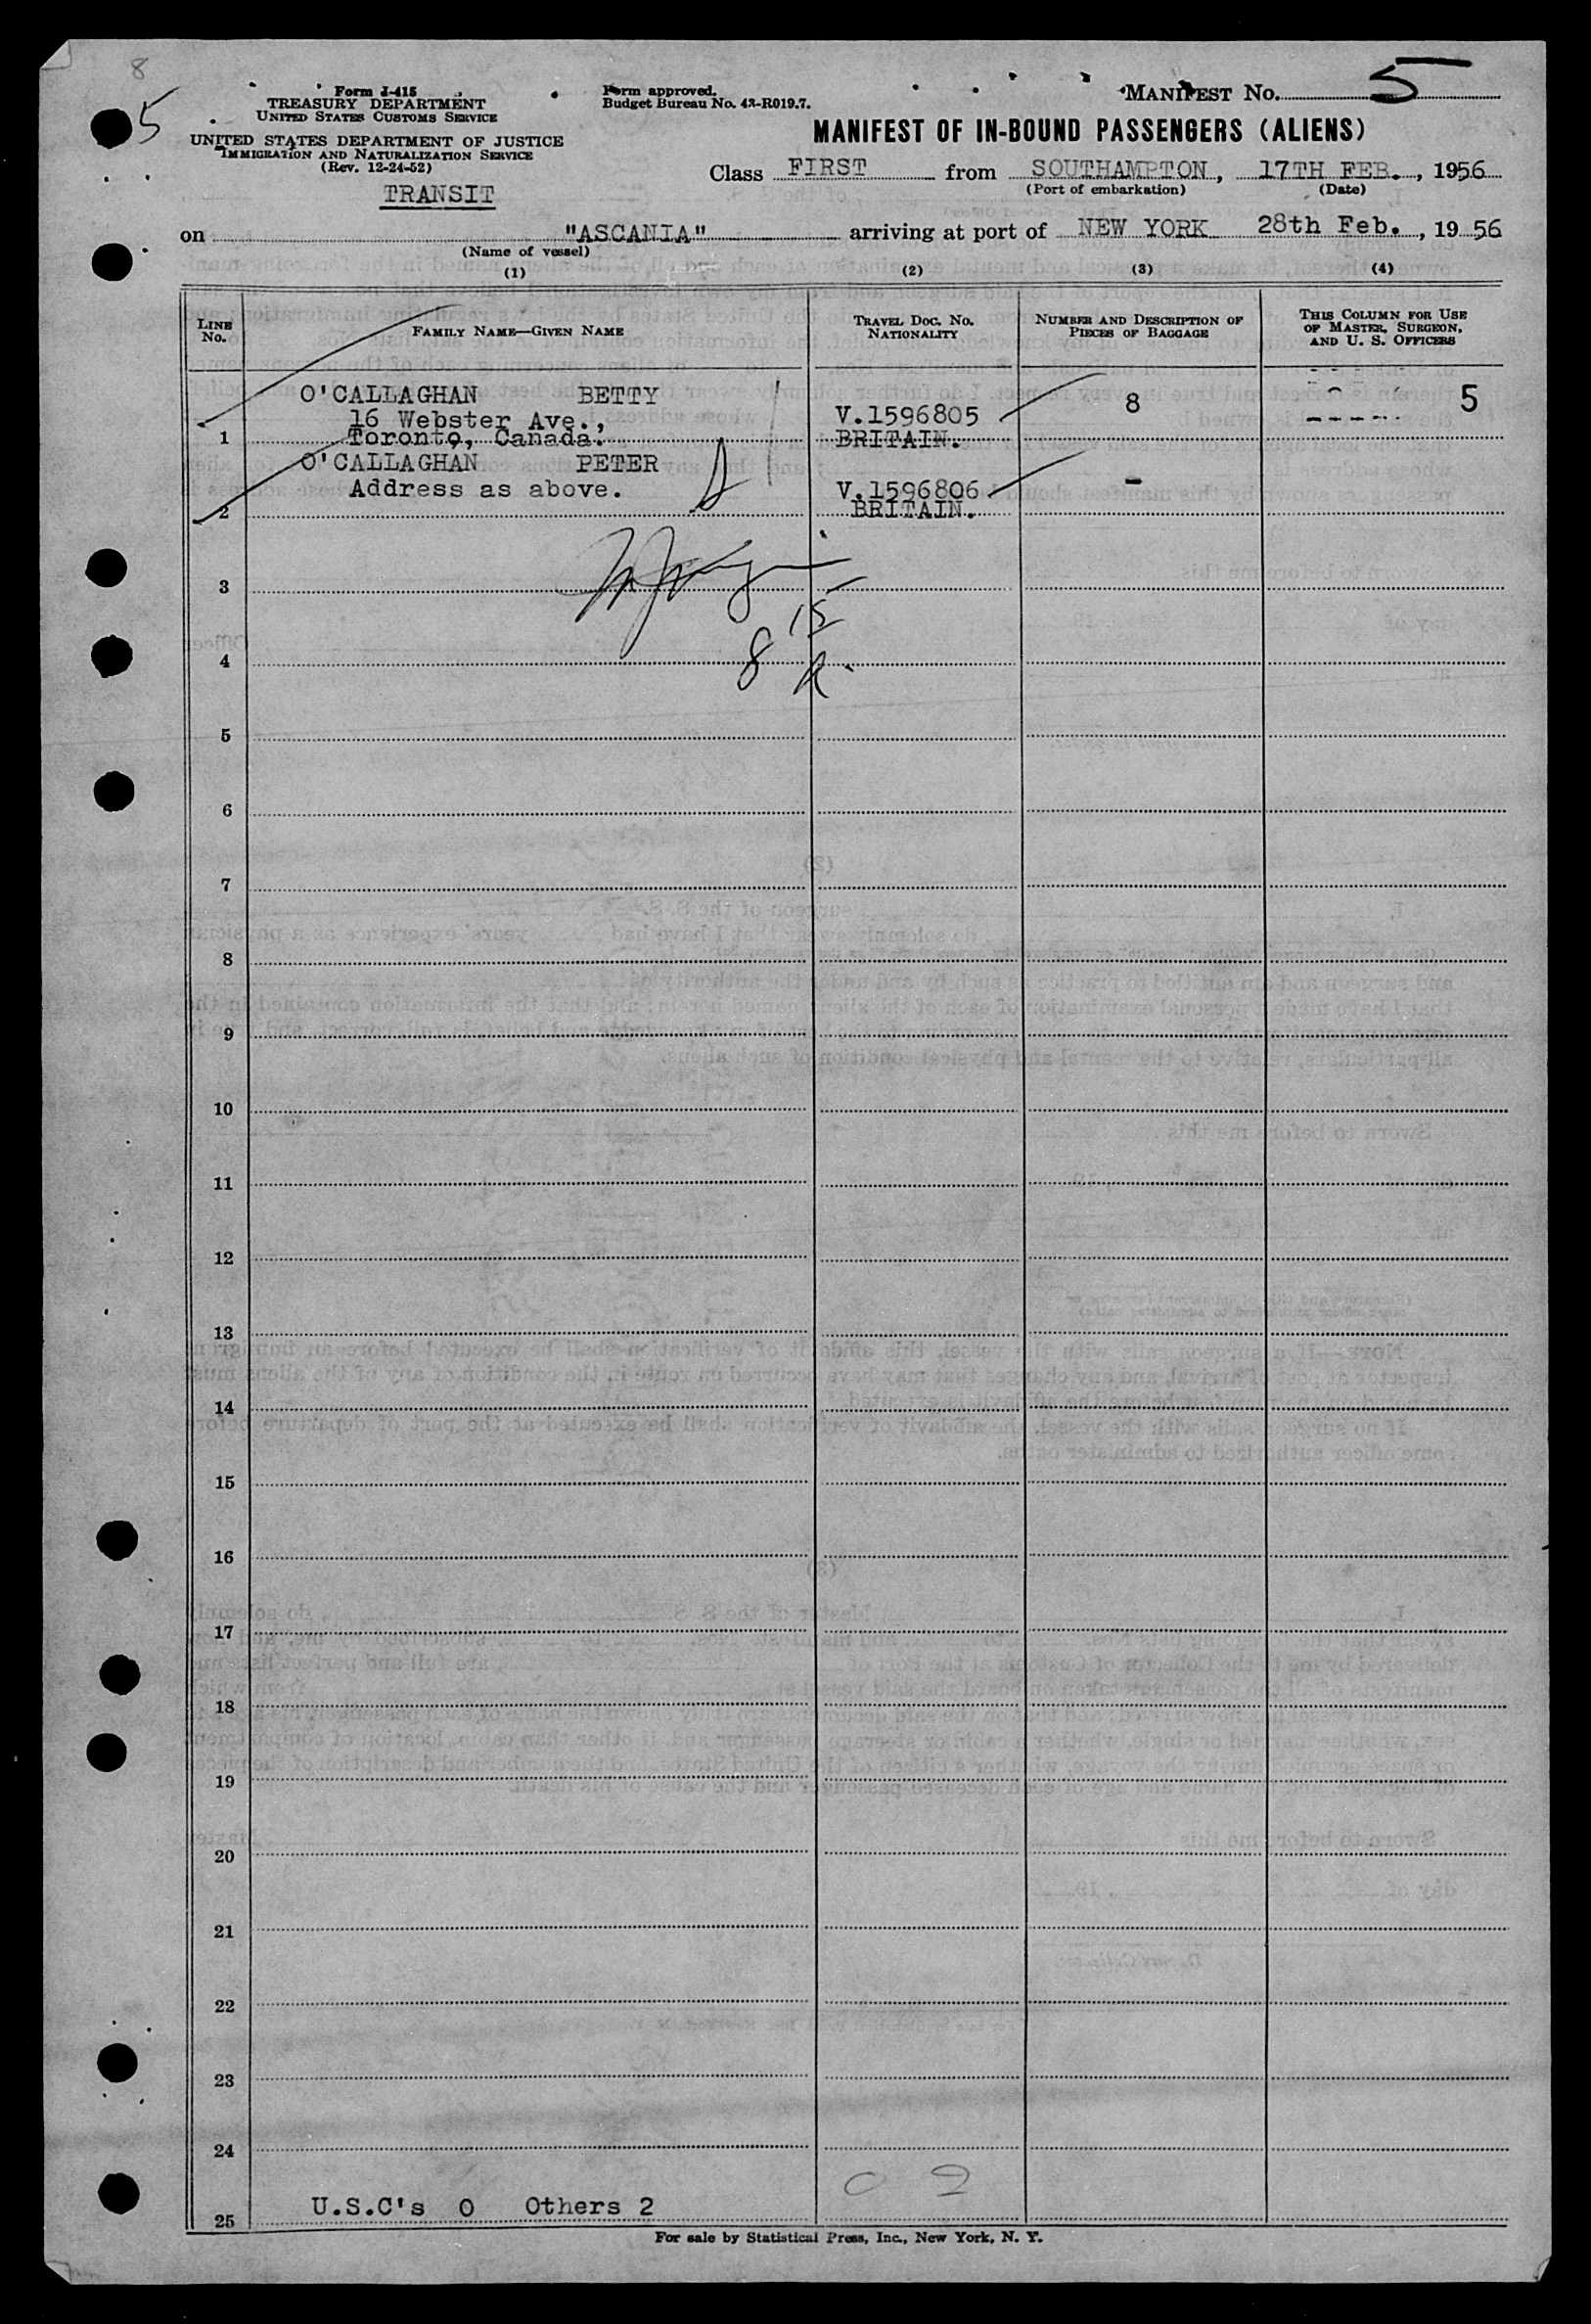 8
5
Form I-415
TREASURY DEPARTMENT
UNITED STATES CUSTOMS SERVICE
UNITED STATES DEPARTMENT OF JUSTICE
IMMIGRATION AND NATURALIZATION SERVICE
(Rev. 12-24-52)
TRANSIT
Form approved.
Budget Bureau No. 43-R019.7.
MANIFEST No. 5
MANIFEST OF IN-BOUND PASSENGERS (ALIENS)
Class FIRST from SOUTHAMPTON, 17TH FEB., 1956
(Port of embarkation) (Date)
on "ASCANIA" arriving at port of NEW YORK 28th Feb., 19 56
(Name of vessel)
(1) (2) (3) (4)
LINE No. FAMILY NAME—GIVEN NAME TRAVEL DOC. NO. NATIONALITY NUMBER AND DESCRIPTION OF PIECES OF BAGGAGE THIS COLUMN FOR USE OF MASTER, SURGEON, AND U. S. OFFICERS
O'CALLAGHAN BETTY
16 Webster Ave., V.1596805 8 5
1 Toronto, Canada. BRITAIN.
O'CALLAGHAN PETER
Address as above. V.1596806 -
2 BRITAIN.
3
15
4 8
5
6
7
8
9
10
11
12
13
14
15
16
17
18
19
20
21
22
23
24
0 2
25 U.S.C's 0 Others 2
For sale by Statistical Press, Inc., New York, N. Y.